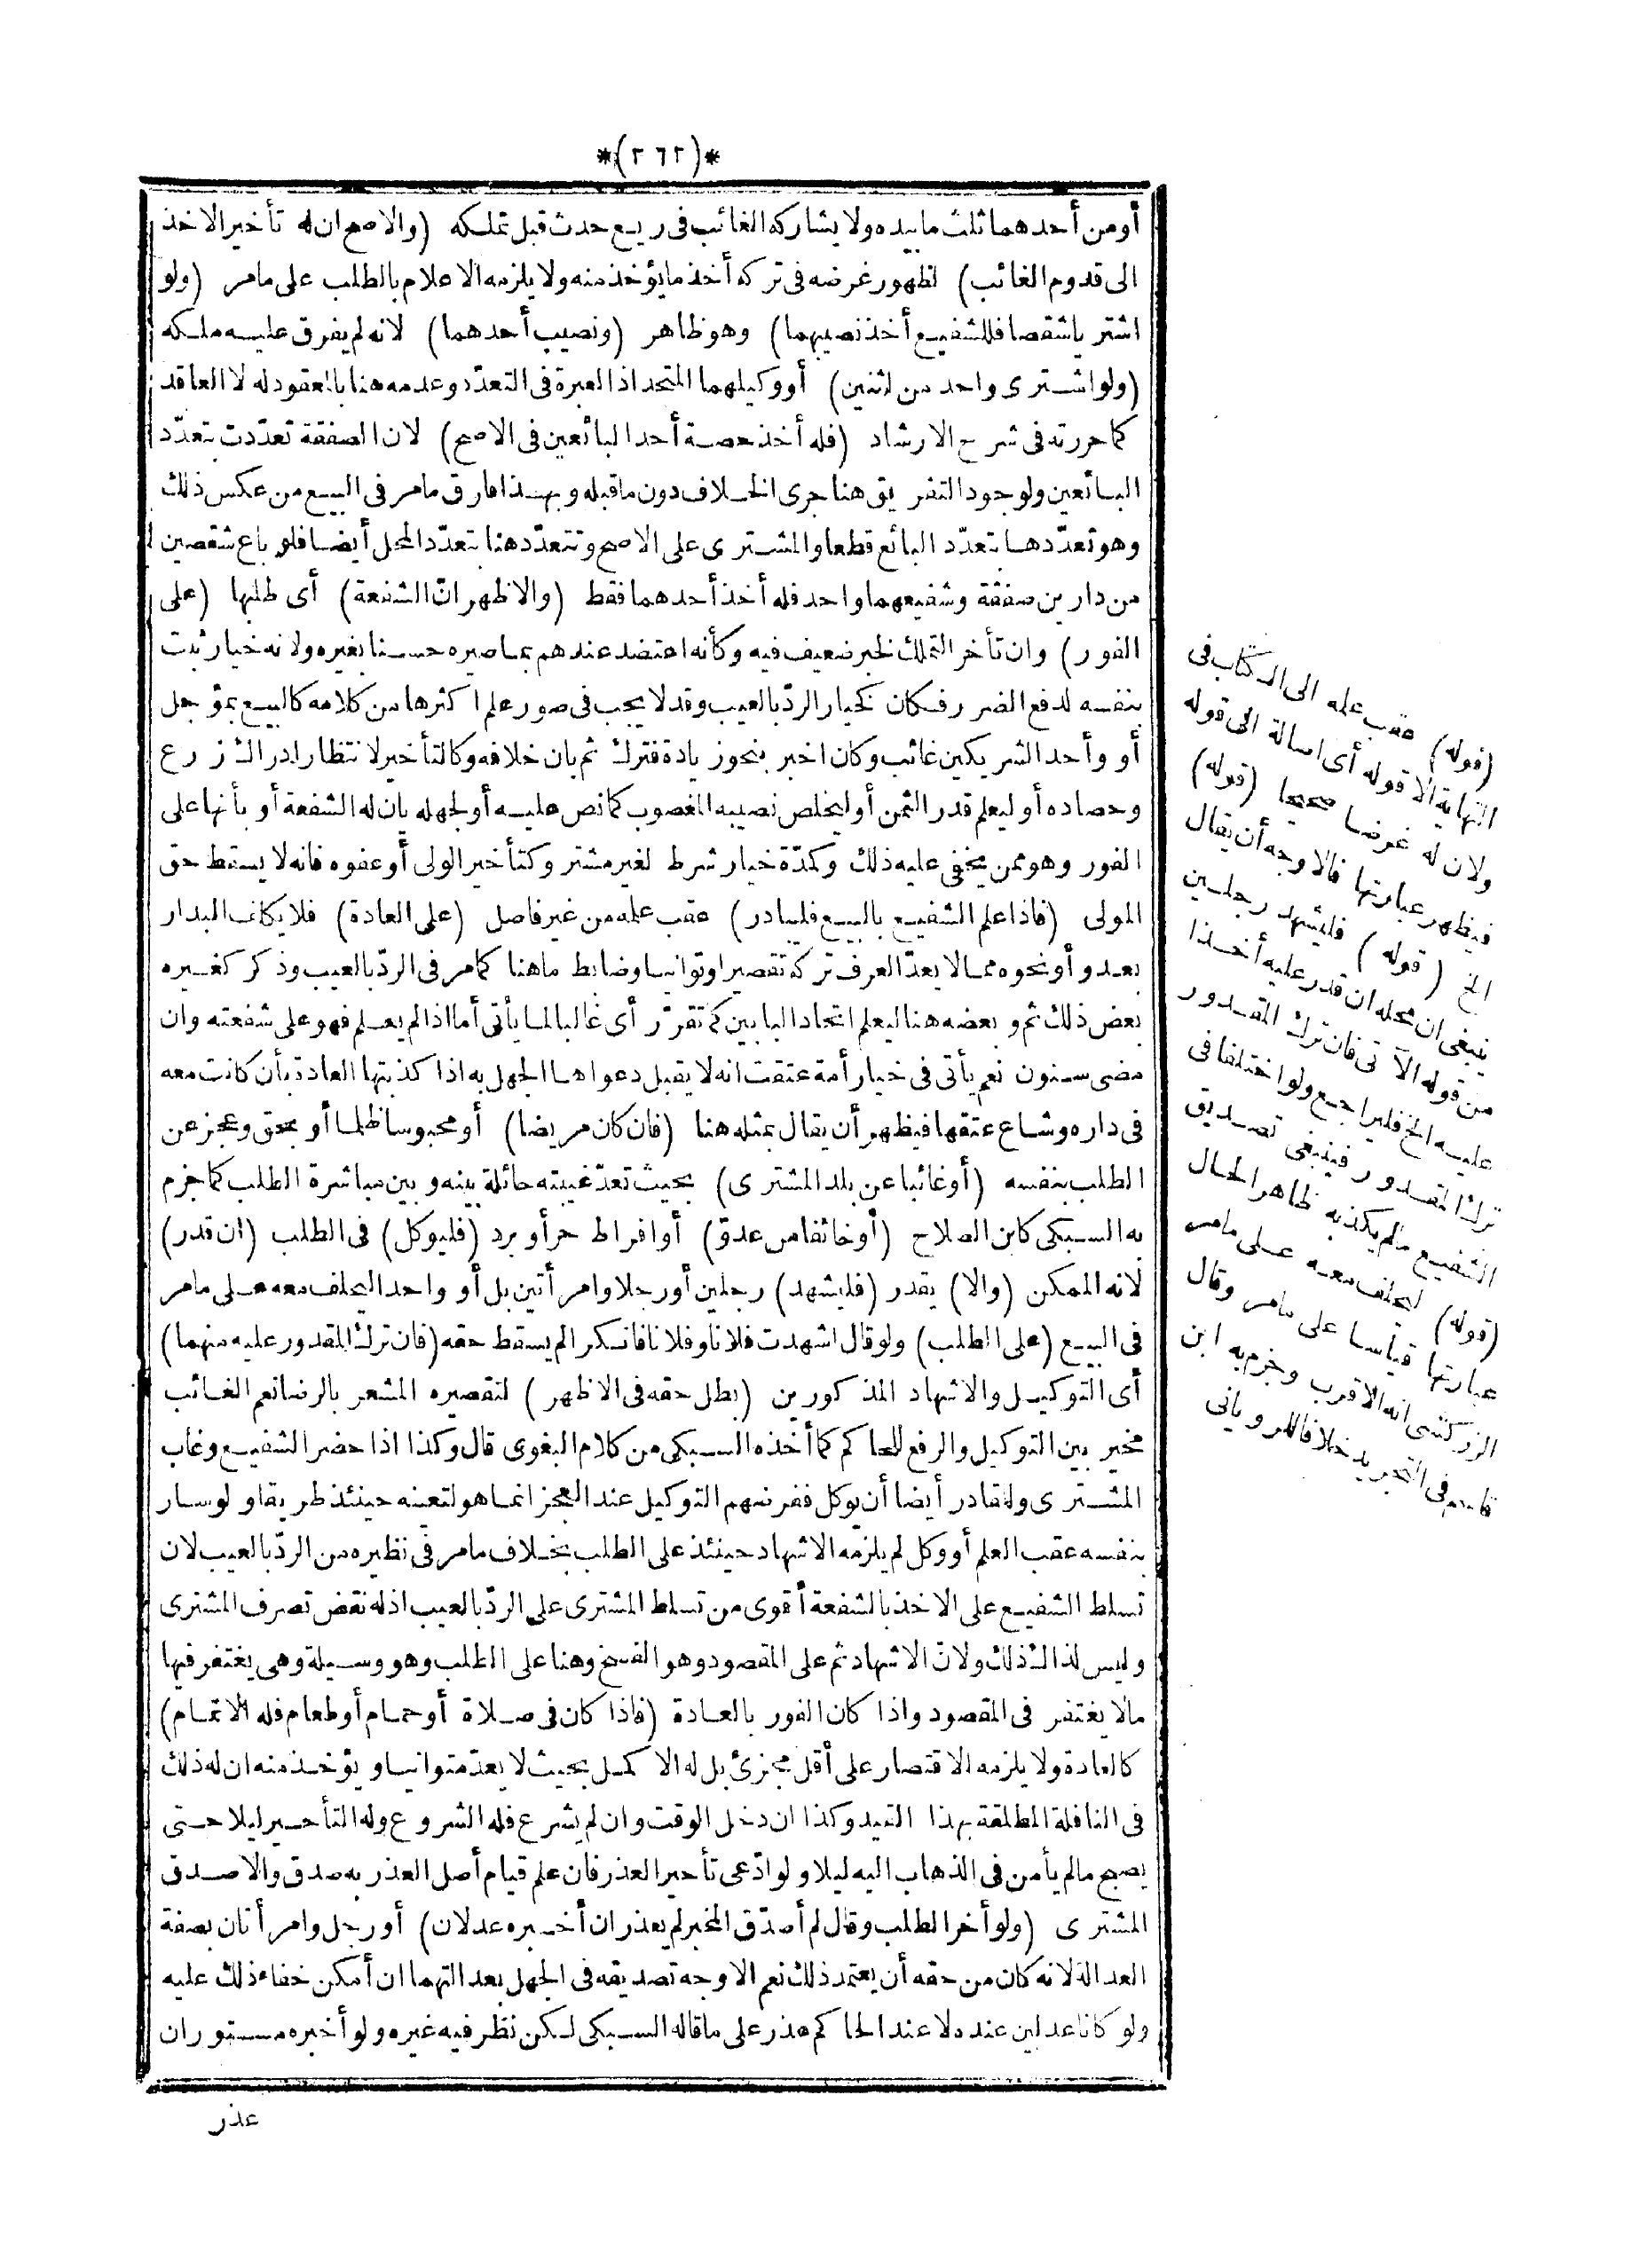 *(٢٦٢)*
أومن أحدهما ثلث مابيده ولا يشاركه الغائب فى ريع حدث قبل تملكه (والاصح ان له تأخير الاخذ
الى قدوم الغائب) لظهور غرضه فى تركه أخذ ما يؤخذ منه ولا يلزمه الاعلام بالطلب على مامر (ولو
اشتريا شقصا فللشفيع أخذ نصيبهما) وهو ظاهر (ونصيب أحدهما) لانه لم يفرق عليه ملكه
(ولو اشترى واحد من اثنين) أو وكيلهما المتحد اذ العبرة فى التعدّد وعدمه هنا بالمعقود له لا العاقد
كما حررته فى شرح الارشاد (فله أخذ حصة أحد البائعين فى الاصح) لان الصفقة تعدّدت بتعدّد
البائعين ولوجود التفريق هنا جرى الخلاف دون ما قبله وبهذا فارق مامر فى البيع من عكس ذلك
وهو تعدّدها بتعدّد البائع قطعا والمشترى على الاصح وتتعدّد هنا بتعدّد المحل أيضا فلو باع شقصين
من دارين صفقة وشفيعهما واحد فله أخذ أحدهما فقط (والاظهر انّ الشفعة) أى طلبها (على
الفور) وان تأخر التملك لخبر ضعيف فيه وكأنه اعتضد عندهم بما صيره حسنا بغيره ولانه خيار ثبت
بنفسه لدفع الضرر فكان كخيار الردّ بالعيب وقد لا يجب فى صور علم اكثرها من كلامه كالبيع بمؤجل
أو وأحد الشريكين غائب وكان اخبر بنحو زيادة فترك ثم بان خلافه وكالتأخير لانتظار ادراك زرع
وحصاده أو ليعلم قدر الثمن أو ليخلص نصيبه المغصوب كما نص عليه أو لجهله بان له الشفعة أو بأنها على
الفور وهو ممن يخفى عليه ذلك وكمدّة خيار شرط لغير مشتر وكتأخير الولى أو عفوه فانه لا يسقط حق
المولى (فاذا علم الشفيع بالبيع فليبادر) عقب علمه من غير فاصل (على العادة) فلا يكلف البدار
بعدو أو نحوه مما لا يعدّ العرف تركه تقصيرا وتوانيا وضابط ما هنا كما مر فى الردّ بالعيب وذكر كغيره
بعض ذلك ثم وبعضه هنا ليعلم اتحاد البابين كما تقرّر أى غالبا لما يأتى أما اذا لم يعلم فهو على شفعته وان
مضى سنون نعم يأتى فى خيار أمة عتقت انه لا يقبل دعواها الجهل به اذا كذبتها العادة بأن كانت معه
فى داره وشاع عتقها فيظهر أن يقال بمثله هنا (فان كان مريضا) أو محبوسا ظلما أو بحق وعجز عن
الطلب بنفسه (أو غائبا عن بلد المشترى) بحيث تعدّ غيبته حائلة بينه وبين مباشرة الطلب كما جزم
به السبكى كابن الصلاح (أو خائفا من عدوّ) أو افراط حر أو برد (فليوكل) فى الطلب (ان قدر)
لانه الممكن (والا) يقدر (فليشهد) رجلين أو رجلا وامرأتين بل أو واحدا ليحلف معه على مامر
فى البيع (على الطلب) ولو قال اشهدت فلانا وفلانا فانكرا لم يسقط حقه (فان ترك المقدور عليه منهما)
أى التوكيل والاشهاد المذكورين (بطل حقه فى الاظهر) لتقصيره المشعر بالرضا نعم الغائب
مخير بين التوكيل والرفع للحاكم كما أخذه السبكى من كلام البغوى قال وكذا اذا حضر الشفيع وغاب
المشترى وللقادر أيضا أن يوكل ففرضهم التوكيل عند العجز انما هو لتعينه حينئذ طريقا ولو سار
بنفسه عقب العلم أو وكل لم يلزمه الاشهاد حينئذ على الطلب بخلاف مامر فى نظيره من الردّ بالعيب لان
تسلط الشفيع على الاخذ بالشفعة أقوى من تسلط المشترى على الردّ بالعيب اذ له نقض تصرف المشترى
وليس لذاك ذلك ولانّ الاشهاد ثم على المقصود وهو الفسخ وهنا على الطلب وهو وسيلة وهى يغتفر فيها
مالا يغتفر فى المقصود واذا كان الفور بالعادة (فاذا كان فى صلاة أو حمام أو طعام فله الاتمام)
كالعادة ولا يلزمه الاقتصار على أقل مجزئ بل له الاكمل بحيث لا يعدّ متوانيا ويؤخذ منه ان له ذلك
فى النافلة المطلقة بهذا القيد وكذا ان دخل الوقت وان لم يشرع فله الشروع وله التأخير ليلا حتى
يصبح مالم يأمن فى الذهاب اليه ليلا ولو ادّعى تأخيرا لعذر فان علم قيام أصل العذر به صدق والا صدق
المشترى (ولو أخر الطلب وقال لم أصدّق المخبر لم يعذر ان أخبره عدلان) أو رجل وامرأتان بصفة
العدالة لانه كان من حقه أن يعتمد ذلك نعم الاوجه تصديقه فى الجهل بعدالتهما ان أمكن خفاء ذلك عليه
ولو كانا عدلين عنده لا عند الحاكم عذر على ما قاله السبكى لكن نظر فيه غيره ولو أخبره مستوران
عذر
(قوله) عقب علمه الى الكتاب فى
النهاية الا قوله أى اصالة الى قوله
ولان له غرضا صحيحا (قوله)
فيظهر عبارتها فالاوجه أن يقال
الخ (قوله) فليشهد رجلين
ينبغى ان محله ان قدر عليه أخذا
من قوله الآتى فان ترك المقدور
عليه الخ فليراجع ولو اختلفا فى
ترك المقدور فينبغى تصديق
الشفيع مالم يكذبه ظاهر الحال
(قوله) ليحلف معه على مامر
عبارتها قياسا على مامر وقال
الزركشى انه الاقرب وجزم به ابن
قاسم فى التجريد خلافا للرويانى